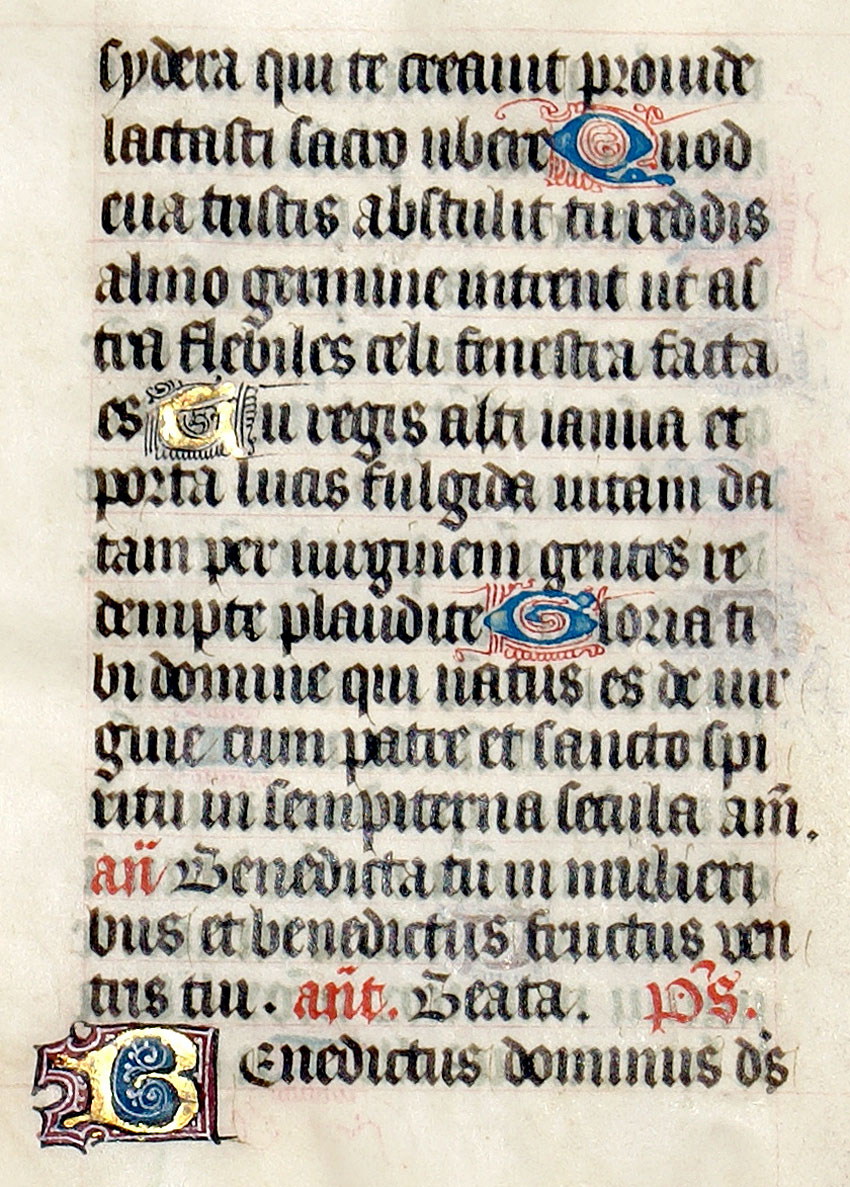 sydera qui te creauit prouide
lactasti sacro ubere Quod
eua tristis abstulit tu reddis
almo germine intrent ut as
tra flebiles celi fenestra facta
es Tu regis alti ianua et
porta lucis fulgida uitam da
tam per uirginem gentes re
dempte plaudite Gloria ti
bi domine qui natus es de uir
gine cum patre et sancto spi
ritu in sempiterna secula am̄.
an̄ Benedicta tu in mulieri
bus et benedictus fructus ven
tris tui. an̄t. Beata. p̄s.
Benedictus dominus d̄s